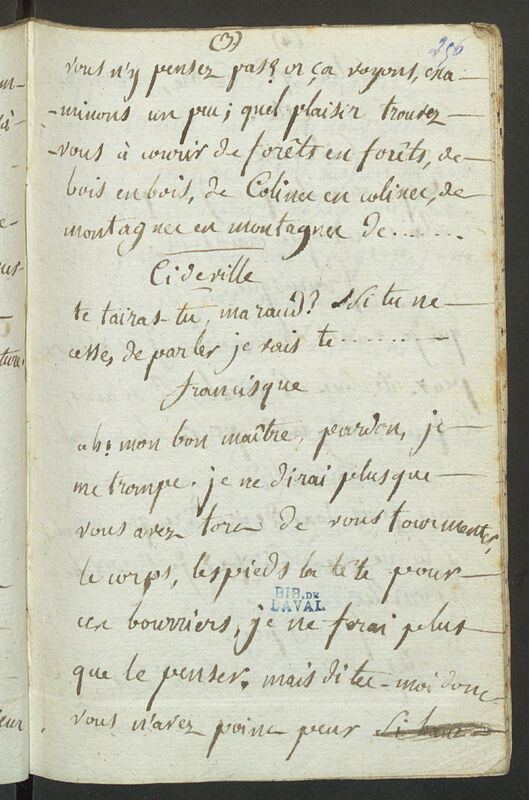 (3)
256
vous n'y pensez pas? or ça voyons, exa
minons un peu; quel plaisir trouvez
-vous à courir de forêts en forêts, de
bois en bois, de Colines en colines, de
montagnes en montagnes de........
Cideville
te tairas-tu, maraud? Si tu ne
cesses de parler je vais te........
francisque
ah! mon bon maître, pardon, je
me trompe. je ne dirai plus que
vous avez tort de vous tourmenter,
le corps, les pieds la tête pour
BIB. DE
LAVAL
ces bourriers, je ne ferai plus
que le penser. mais dites-moi donc
vous n'avez point peur